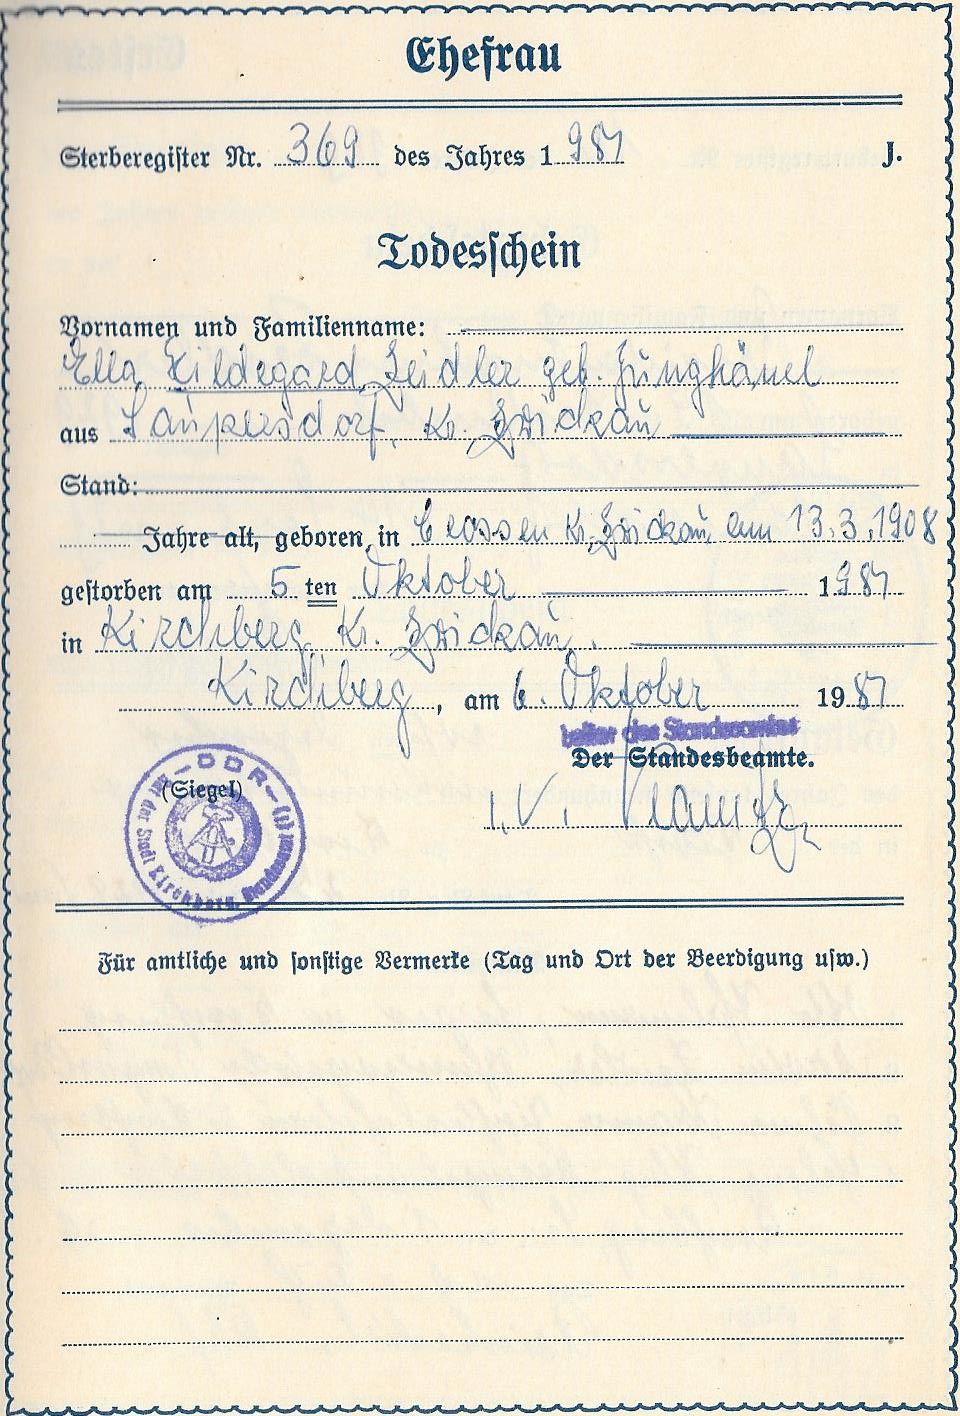 Ehefrau
Sterberegister Nr. 369 des Jahres 1 987 J.
Todesschein
Vornamen und Familienname:
Ella Hildegard Zeidler geb. Junghänel
aus Saupersdorf, Kr. Zwickau
Stand:
Jahre alt, geboren in Crossen Kr. Zwickau am 13.3.1908
gestorben am 5 ten Oktober 1987
in Kirchberg, Kr. Zwickau.
Kirchberg, am 6. Oktober 1987
Leiter des Standesamtes
Der Standesbeamte.
(Siegel)
I.V.
DDR (1)
der Stadt Kirchberg, Standesamt
Für amtliche und sonstige Vermerke (Tag und Ort der Beerdigung usw.)